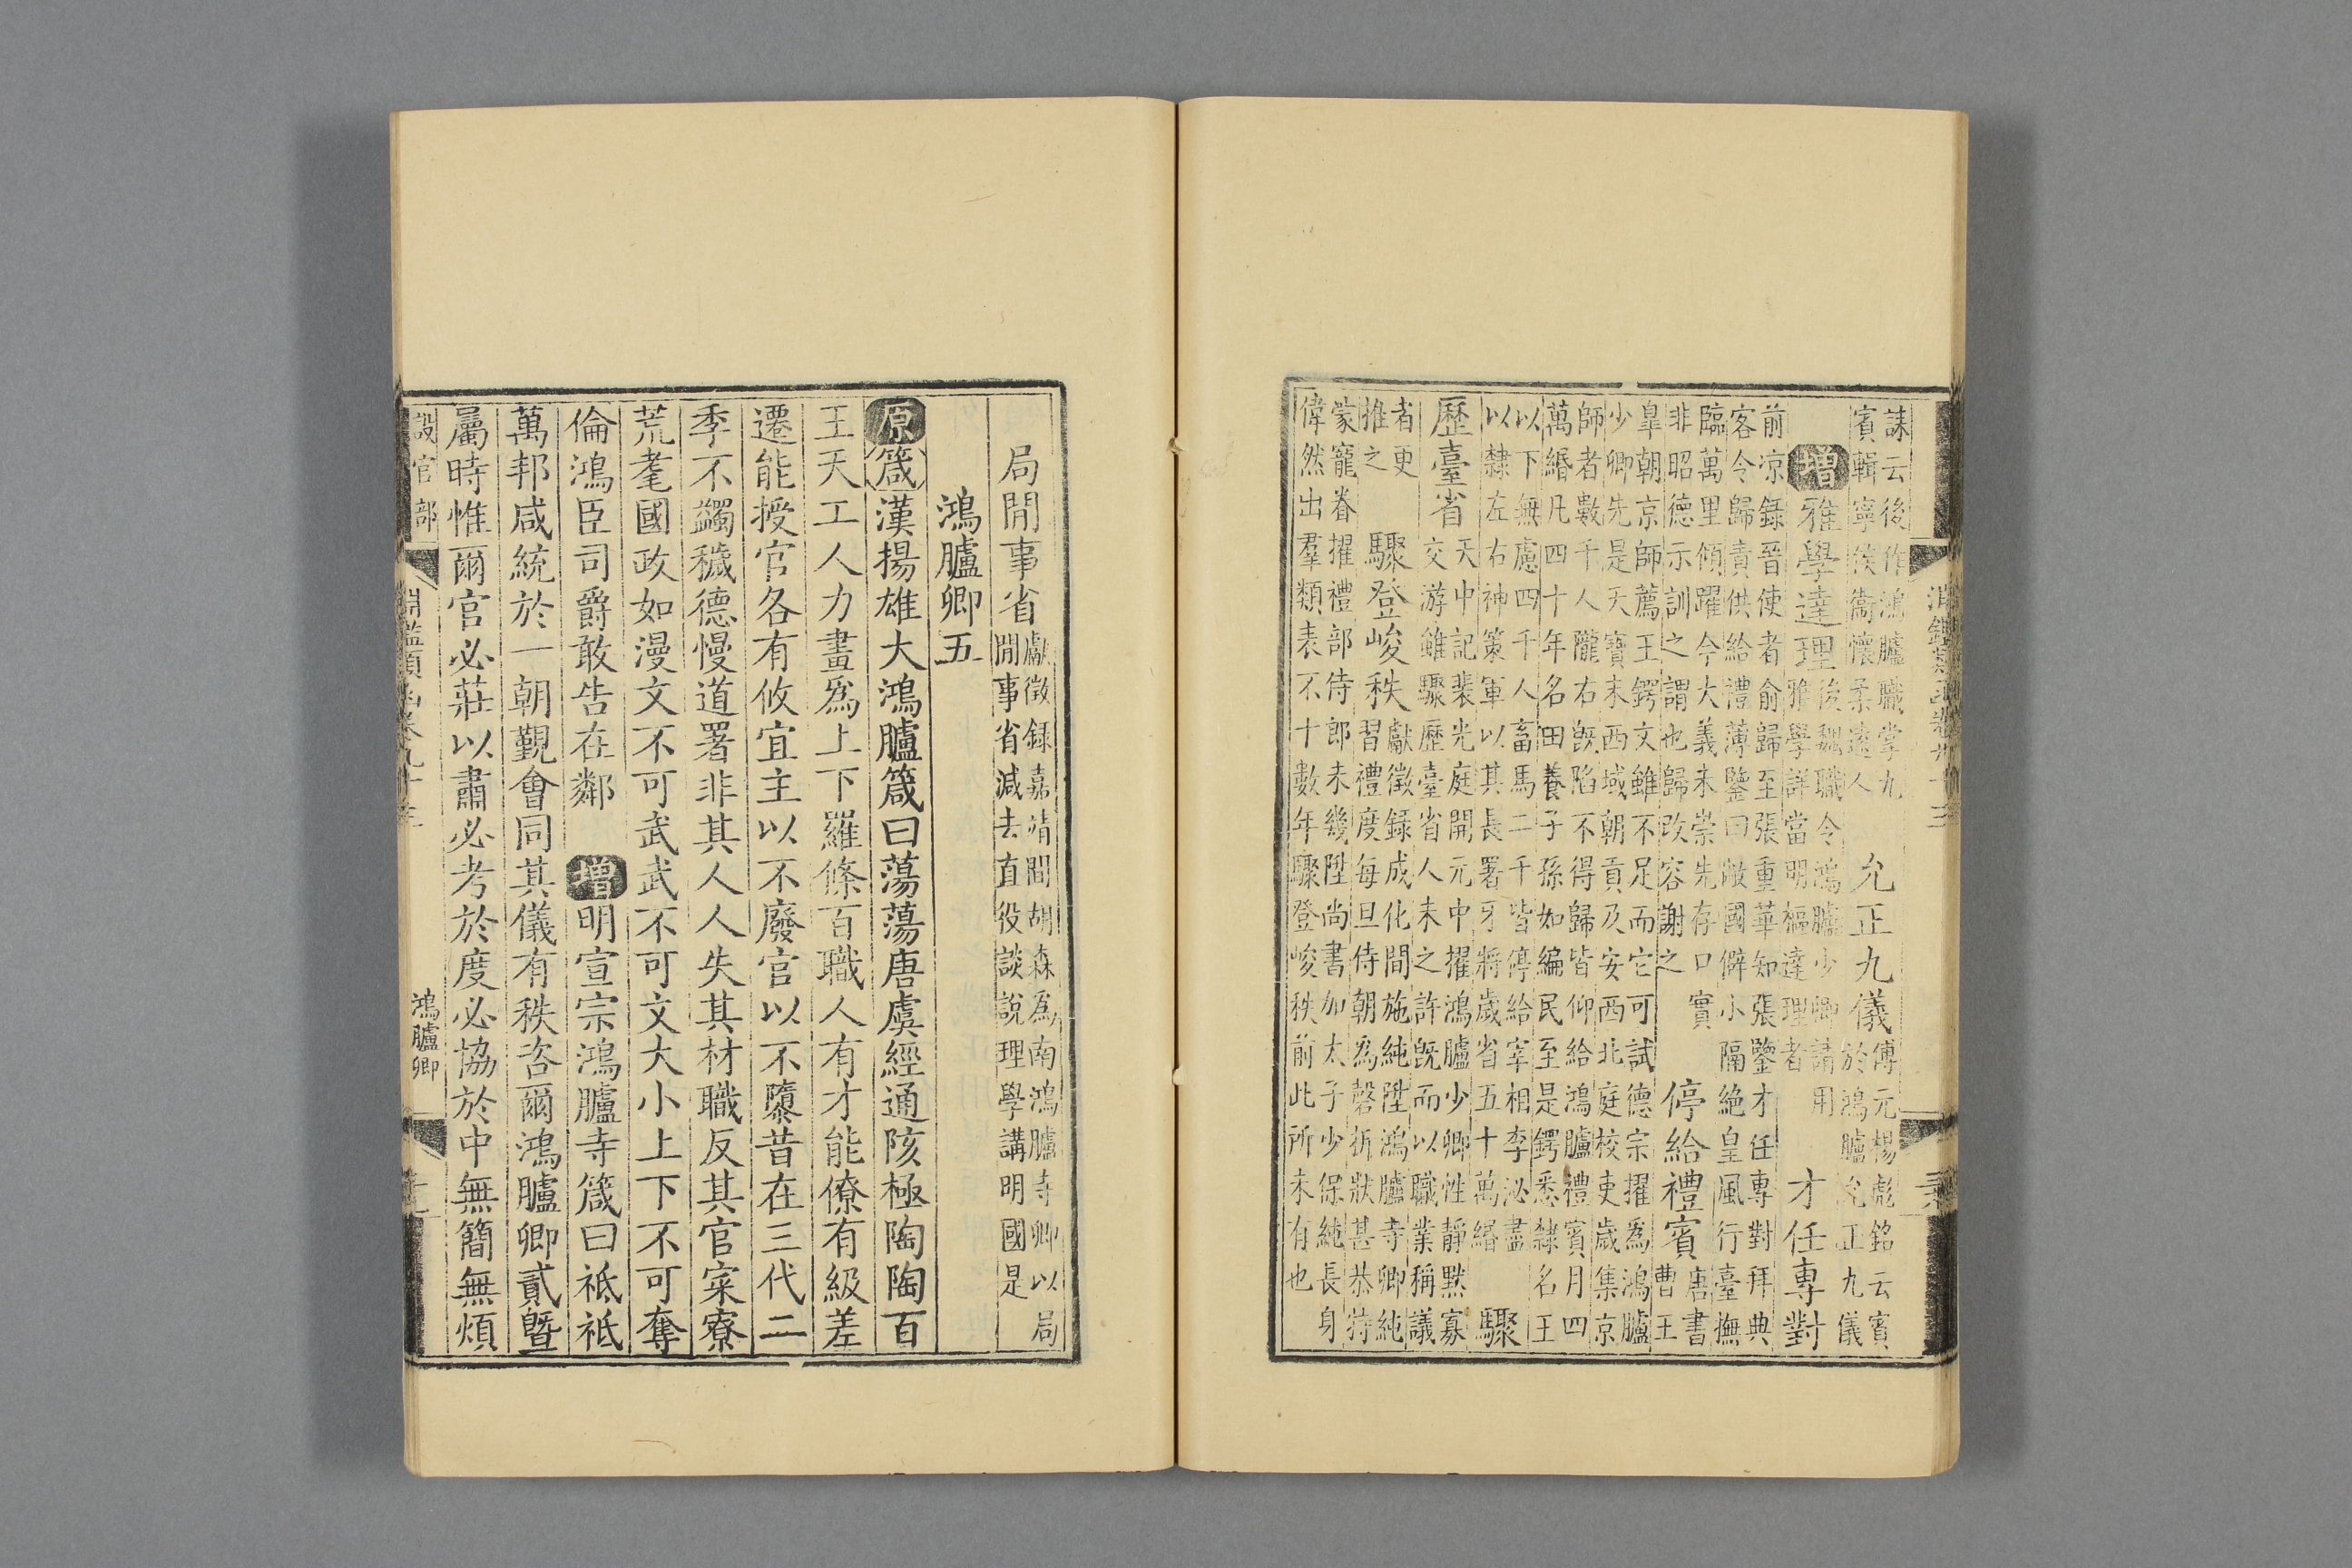 誄云後作鴻臚職掌九
賓輯寧侯衞懷柔遠人
允正九儀
傅元楊彪銘云賓
於鴻臚允正九儀
增雅學達理
後魏職令鴻臚少卿請用
雅學詳當明樞達理者
才任專對
前凉錄晉使者俞歸至張重華知張鑒才任專對拜典
客令歸責供給禮薄鑒曰敝國僻小隔絶皇風行臺撫
臨萬里傾躍今大義未崇先存口實
非昭德示訓之謂也歸改容謝之
停給禮賓
唐書
曹王
皐朝京師薦王鍔文雖不足而它可試德宗擢爲鴻臚
少卿先是天寶末西域朝貢及安西北庭校吏歲集京
師者數千人隴右旣陷不得歸皆仰給鴻臚禮賓月四
萬緡凡四十年名田養子孫如編民至是鍔悉隸名王
以下無慮四千人畜馬二千皆停給宰相李泌盡
以隸左右神策軍以其長署牙將歲省五十萬緡
驟
歷臺省
天中記裴光庭開元中擢鴻臚少卿性靜默寡
交游雖驟歷臺省人未之許旣而以職業稱議
者更
推之
驟登峻秩
獻徵錄成化間施純陞鴻臚寺卿純
習禮度每旦侍朝爲磬折狀甚恭特
蒙寵眷擢禮部侍郎未幾陞尚書加太子少保純長身
偉然出羣類表不十數年驟登峻秩前此所未有也
局閒事省
獻徵錄嘉靖間胡森爲南鴻臚寺卿以局
閒事省減去直役談說理學講明國是
鴻臚卿五
原箴漢揚雄大鴻臚箴曰蕩蕩唐虞經通陔極陶陶百
王天工人力畫爲上下羅條百職人有才能僚有級差
遷能授官各有攸宜主以不廢官以不隳昔在三代二
季不蠲穢德慢道署非其人人失其材職反其官寀寮
荒耄國政如漫文不可武武不可文大小上下不可奪
倫鴻臣司爵敢告在鄰 增明宣宗鴻臚寺箴曰祗祗
萬邦咸統於一朝覲會同其儀有秩咨爾鴻臚卿貳曁
屬時惟爾官必莊以肅必考於度必協於中無簡無煩
設官部
淵鑑類函卷九十三
鴻臚卿